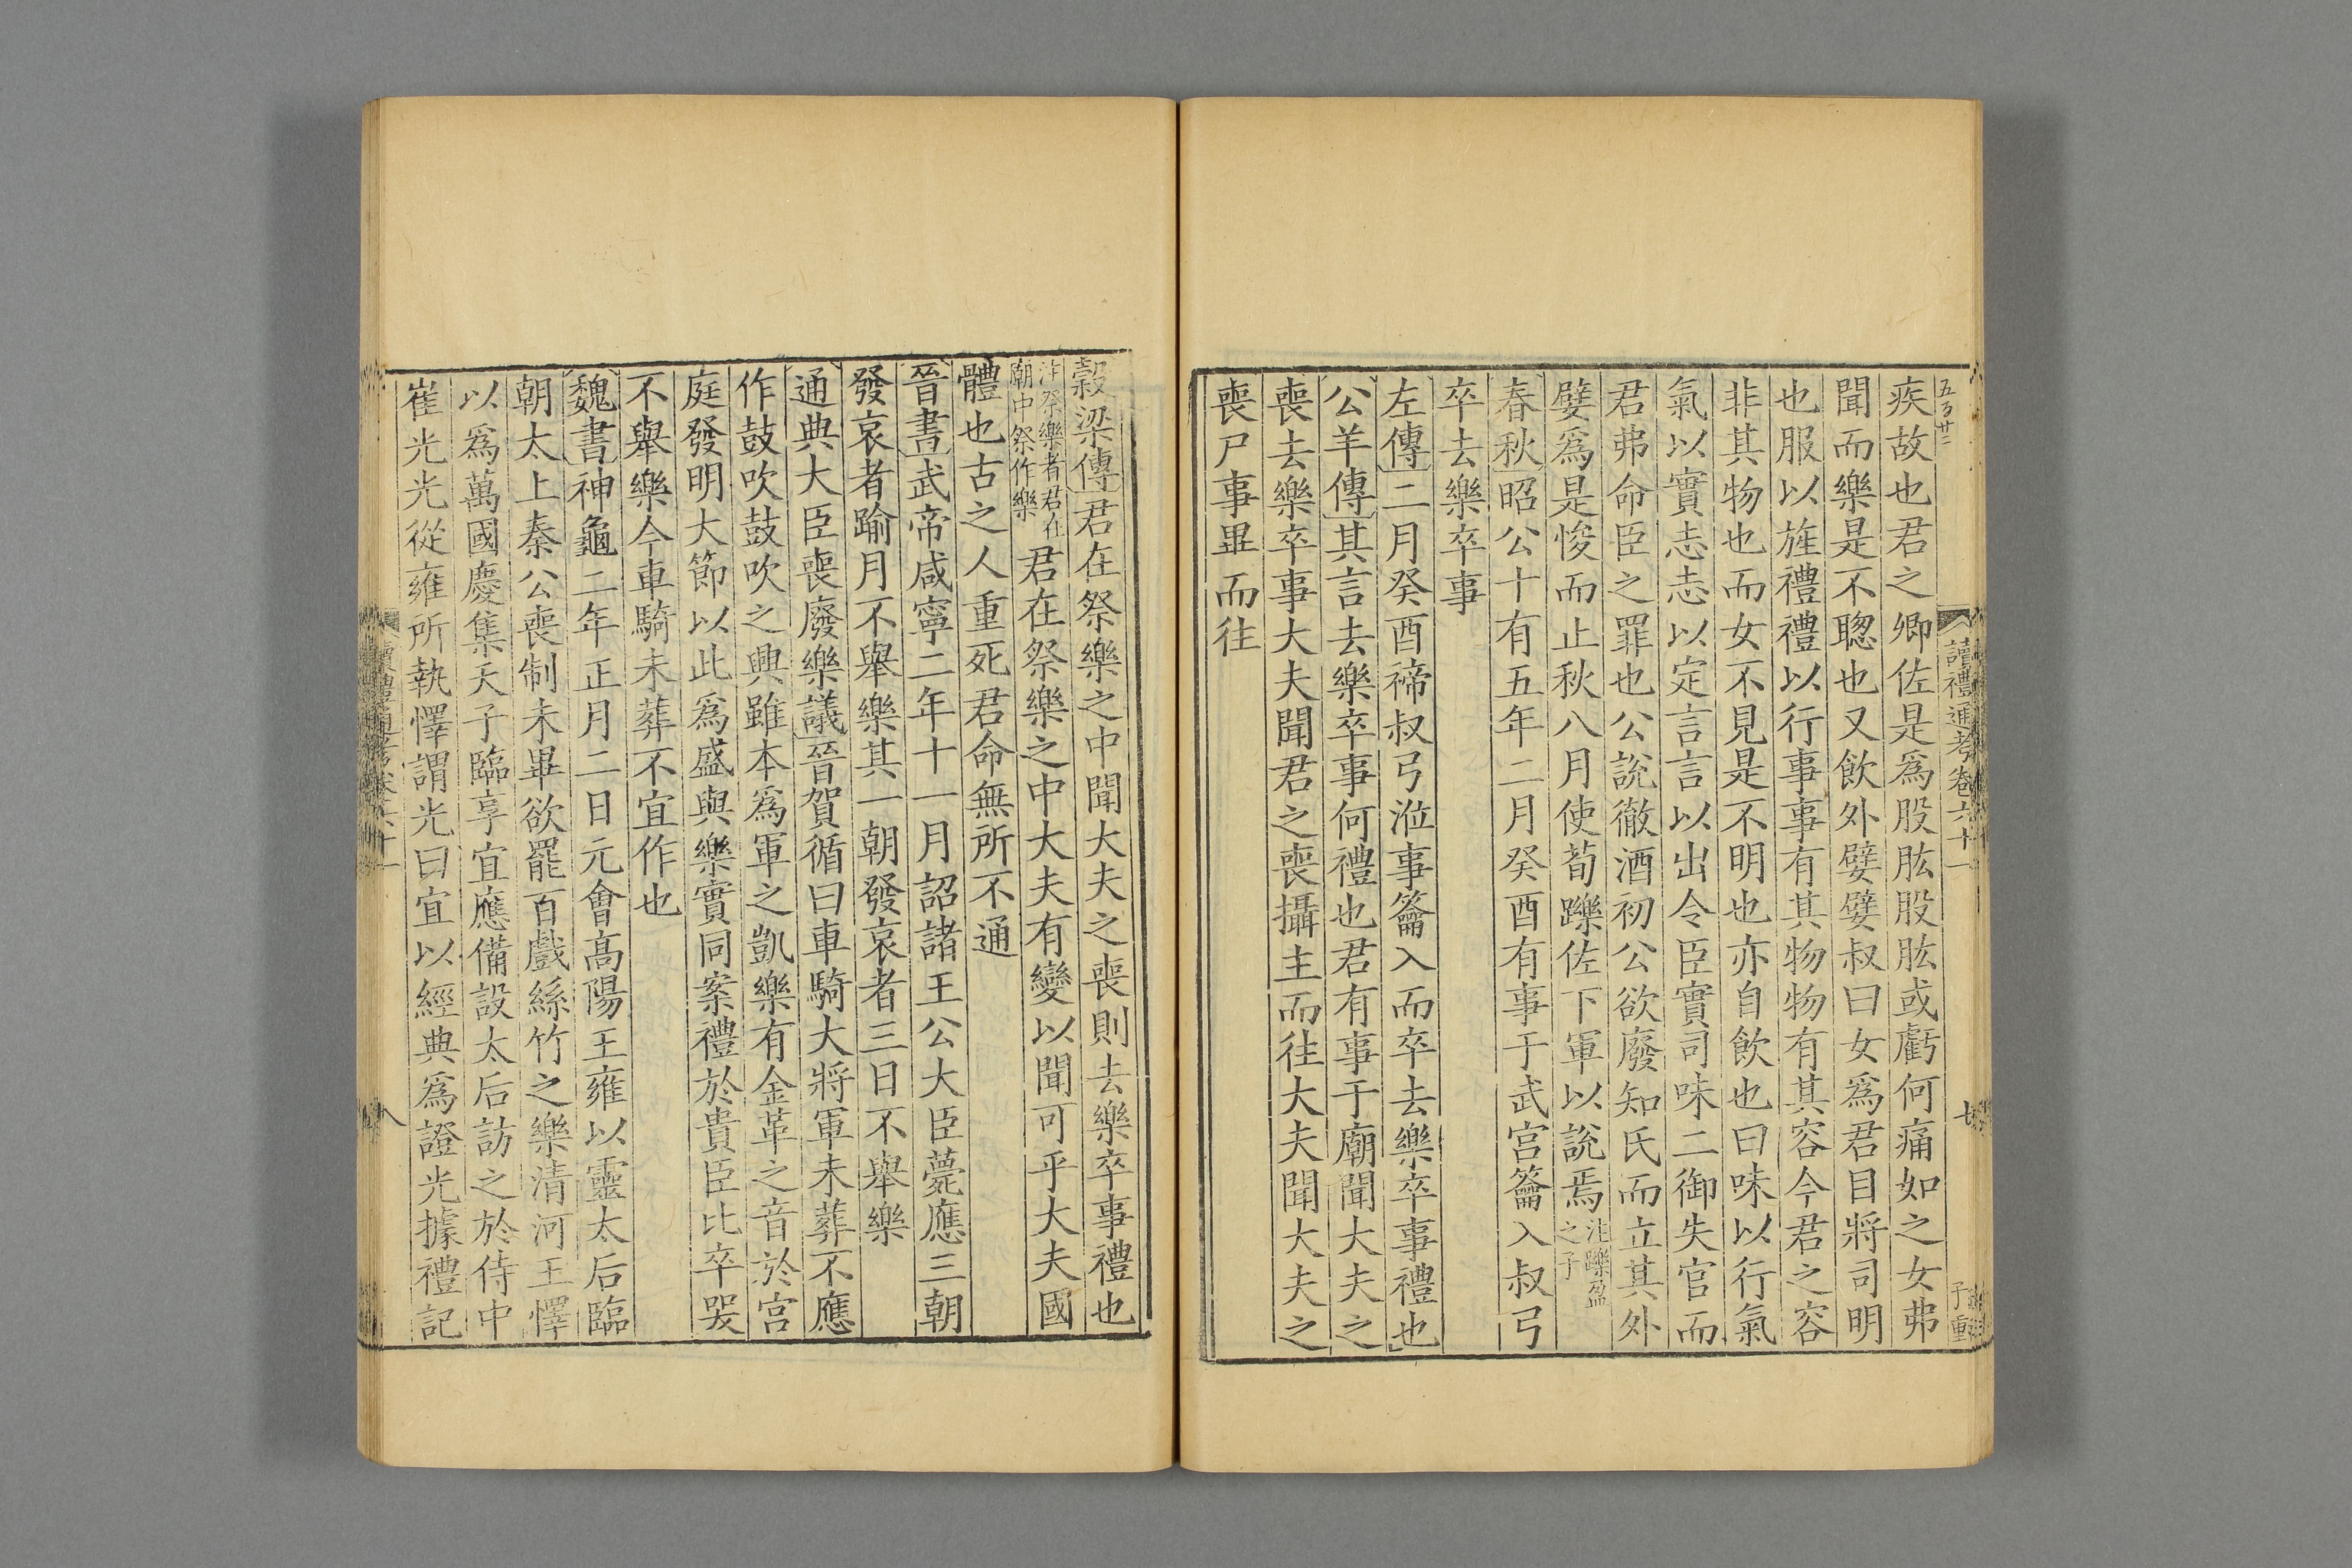 五百廿二
讀禮通考卷六十一
七
子重
疾故也君之卿佐是爲股肱股肱或虧何痛如之女弗
聞而樂是不聰也又飲外嬖嬖叔曰女爲君目將司明
也服以旌禮禮以行事事有其物物有其容今君之容
非其物也而女不見是不明也亦自飲也曰味以行氣
氣以實志志以定言言以出令臣實司味二御失官而
君弗命臣之罪也公說徹酒初公欲廢知氏而立其外
嬖爲是悛而止秋八月使荀躒佐下軍以說焉注躒盈之子
春秋昭公十有五年二月癸酉有事于武宮籥入叔弓
卒去樂卒事
左傳二月癸酉禘叔弓涖事籥入而卒去樂卒事禮也
公羊傳其言去樂卒事何禮也君有事于廟聞大夫之
喪去樂卒事大夫聞君之喪攝主而往大夫聞大夫之
喪尸事畢而往
穀梁傳君在祭樂之中聞大夫之喪則去樂卒事禮也
注祭樂者君在廟中祭作樂君在祭樂之中大夫有變以聞可乎大夫國
體也古之人重死君命無所不通
晉書武帝咸寧二年十一月詔諸王公大臣薨應三朝
發哀者踰月不舉樂其一朝發哀者三日不舉樂
通典大臣喪廢樂議晉賀循曰車騎大將軍未葬不應
作鼓吹鼓吹之興雖本爲軍之凱樂有金革之音於宮
庭發明大節以此爲盛與樂實同案禮於貴臣比卒哭
不舉樂今車騎未葬不宜作也
魏書神龜二年正月二日元會高陽王雍以靈太后臨
朝太上秦公喪制未畢欲罷百戲絲竹之樂清河王懌
以爲萬國慶集天子臨享宜應備設太后訪之於侍中
崔光光從雍所執懌謂光曰宜以經典爲證光據禮記
讀禮通考卷六十一
八